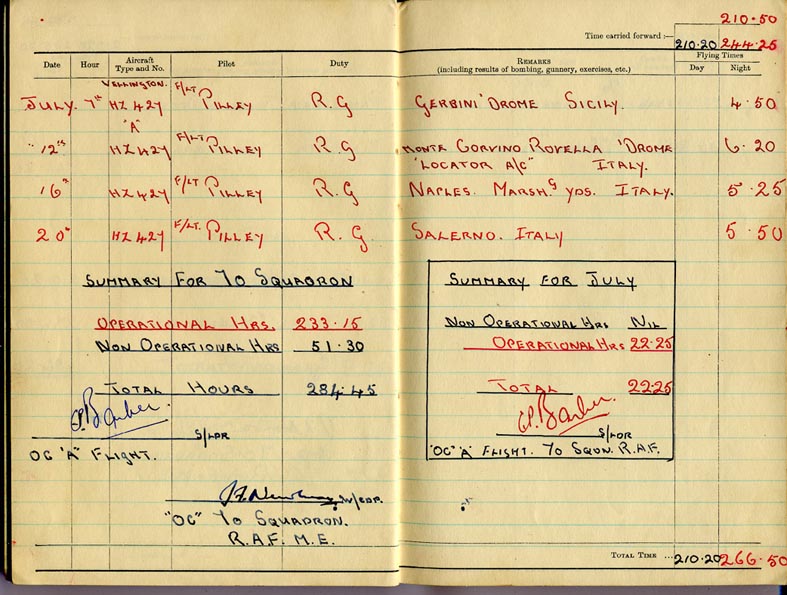 210·50
Time carried forward :— 210·20 244·25
Date Hour Aircraft Type and No. Pilot Duty Remarks (including results of bombing, gunnery, exercises, etc.) Flying Times Day Night
WELLINGTON.
JULY. 7th HZ 427 F/LT PILLEY R.G GERBINI 'DROME SICILY. 4·50
"A"
" 12th HZ 427 F/LT PILLEY R.G MONTE CORVINO ROVELLA 'DROME 6·20
"LOCATOR A/C" ITALY.
16th HZ 427 F/LT PILLEY R.G NAPLES. MARSHG YDS. ITALY. 5·25
20th HZ 427 F/LT. PILLEY R.G SALERNO. ITALY 5·50
SUMMARY FOR 70 SQUADRON
OPERATIONAL HRS. 233·15
NON OPERATIONAL HRS 51·30
TOTAL HOURS 284·45
Barber.
S/LDR
OC "A" FLIGHT.
W/CDR.
"OC" 70 SQUADRON.
R.A.F. M.E.
SUMMARY FOR JULY
NON OPERATIONAL HRS NIL
OPERATIONAL HRS 22·25
TOTAL 22·25
Barber.
S/LDR
"OC" "A" FLIGHT. 70 SQDN. R.A.F.
TOTAL TIME ... 210·20 266·50